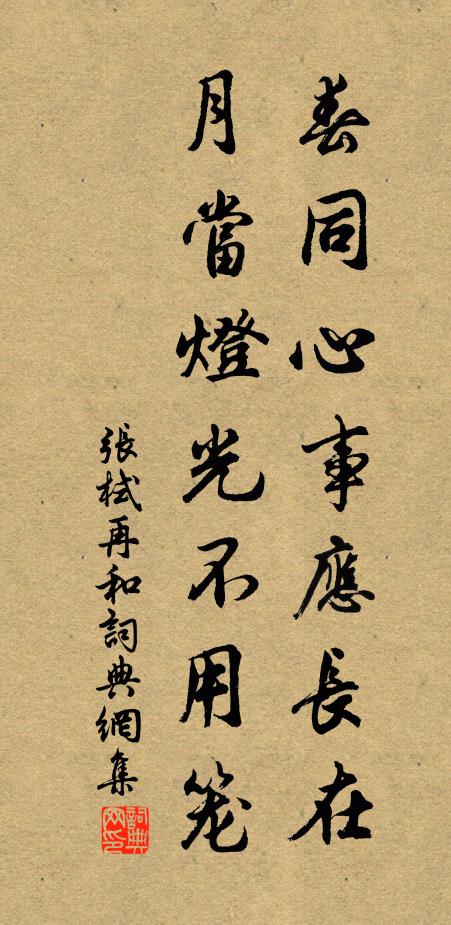 春同心事應長在
月當燈光不用笼
張栻再和詞典網集
詞典网印